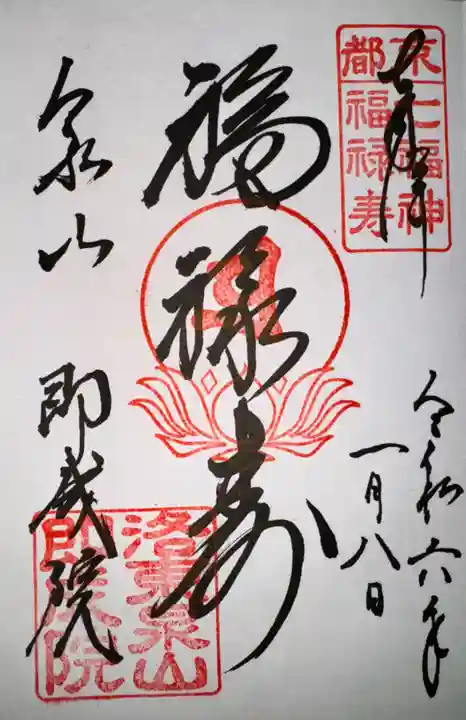 京都
七福神
福禄寿
令和六年
一月八日
福禄寿
泉山 即成院
洛東泉山
即成院